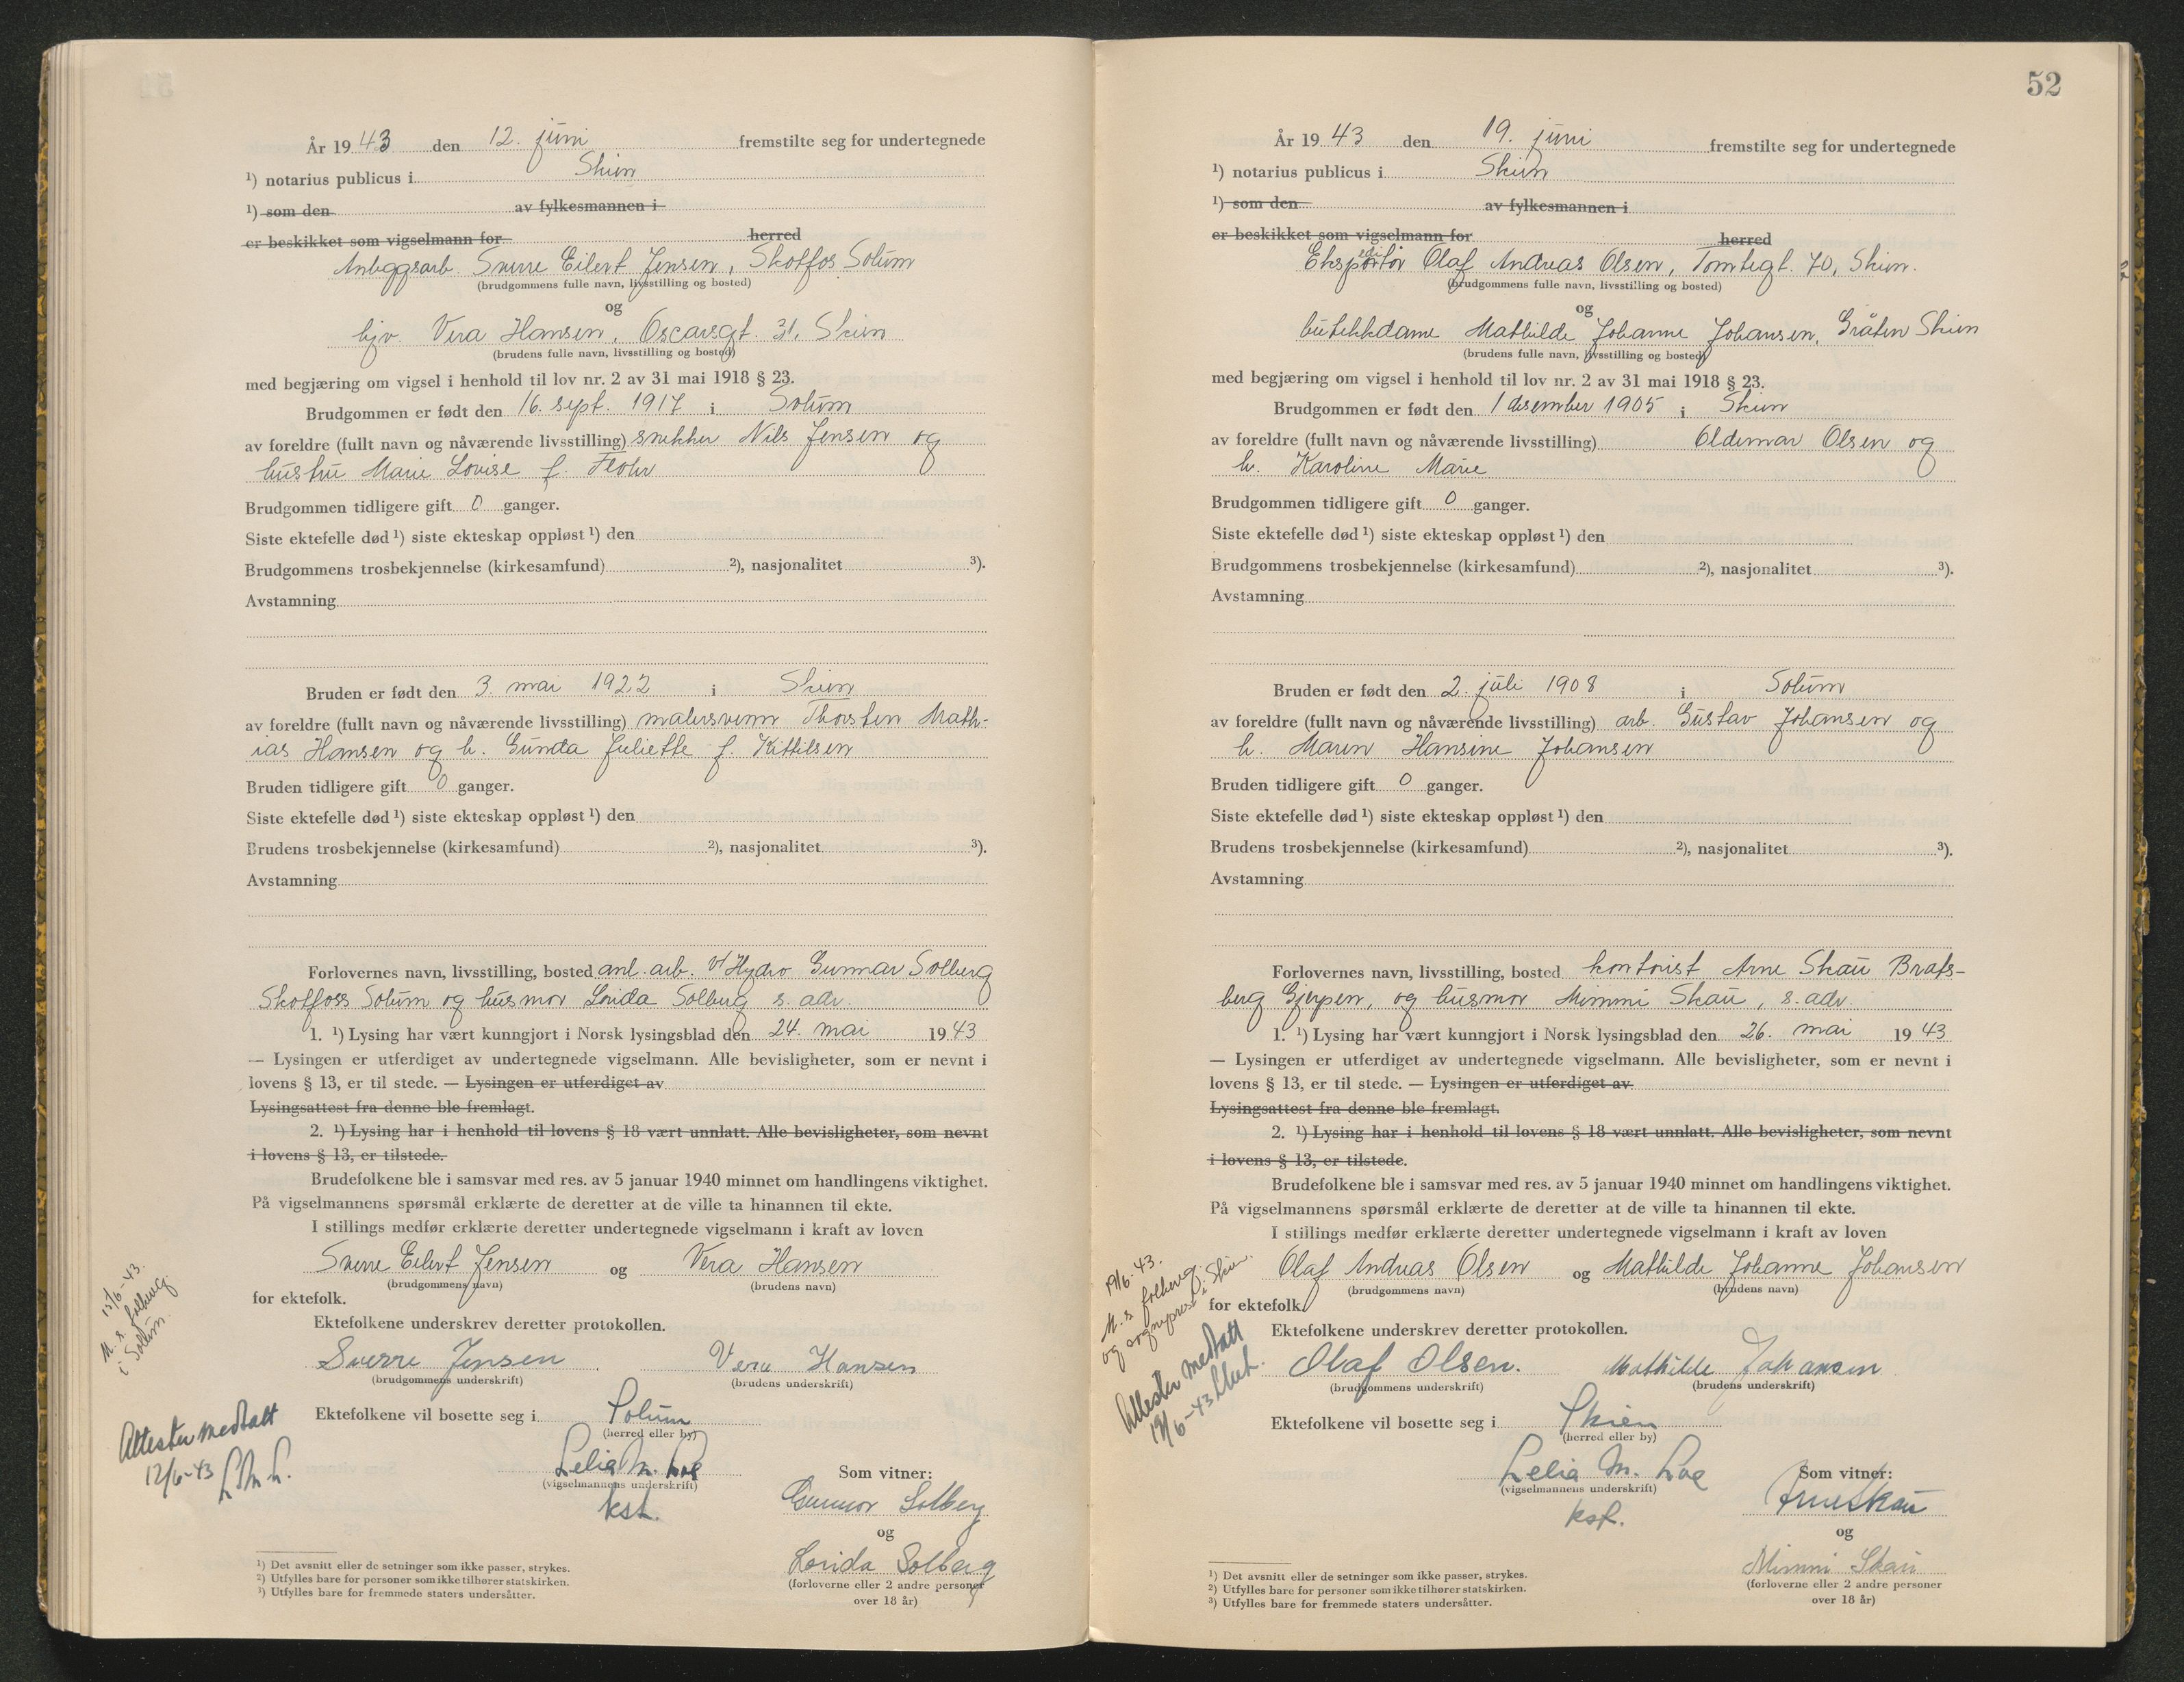 År 1943 den 12. juni fremstilte seg for undertegnede
¹) notarius publicus i Skien
¹) som den av fylkesmannen i
er beskikket som vigselmann for herred
Anleggsarb. Sverre Eilert Jensen, Skotfos Solum
(brudgommens fulle navn, livsstilling og bosted)
og
hjv. Vera Hansen, Oscarsgt. 31, Skien
(brudens fulle navn, livsstilling og bosted)
med begjæring om vigsel i henhold til lov nr. 2 av 31 mai 1918 § 23.
Brudgommen er født den 16. sept. 1917 i Solum
av foreldre (fullt navn og nåværende livsstilling) snekker Nils Jensen og
hustru Marie Lovise f. Flohr
Brudgommen tidligere gift 0 ganger.
Siste ektefelle død ¹) siste ekteskap oppløst ¹) den
Brudgommens trosbekjennelse (kirkesamfund) ²), nasjonalitet ³).
Avstamning
Bruden er født den 3. mai 1922 i Skien
av foreldre (fullt navn og nåværende livsstilling) malersvenn Thorsten Math-
ias Hansen og h. Gunda Juliette f. Kittilsen
Bruden tidligere gift 0 ganger.
Siste ektefelle død ¹) siste ekteskap oppløst ¹) den
Brudens trosbekjennelse (kirkesamfund) ²), nasjonalitet ³).
Avstamning
Forlovernes navn, livsstilling, bosted anl. arb. v/ Hydro Gunnar Solberg
Skotfoss Solum og husmor Lovida Solberg s. adr.
1. ¹) Lysing har vært kunngjort i Norsk lysingsblad den 24. mai 1943
— Lysingen er utferdiget av undertegnede vigselmann. Alle bevisligheter, som er nevnt i
lovens § 13, er til stede. — Lysingen er utferdiget av
Lysingsattest fra denne ble fremlagt.
2. ¹) Lysing har i henhold til lovens § 18 vært unnlatt. Alle bevisligheter, som nevnt
i lovens § 13, er tilstede.
Brudefolkene ble i samsvar med res. av 5 januar 1940 minnet om handlingens viktighet.
På vigselmannens spørsmål erklærte de deretter at de ville ta hinannen til ekte.
I stillings medfør erklærte deretter undertegnede vigselmann i kraft av loven
Sverre Eilert Jensen og Vera Hansen
(brudgommens navn) (brudens navn)
for ektefolk.
Ektefolkene underskrev deretter protokollen.
Sverre Jensen Vera Hansen
(brudgommens underskrift) (brudens underskrift)
Ektefolkene vil bosette seg i Solum
(herred eller by)
Lelia M. Loe
(vigselmannens underskrift)
kst.
Som vitner:
Gunnar Solberg
og
Lovida Solberg
(forloverne eller 2 andre personer
over 18 år)
12/6-43.
M. s. folkereg
i Solum.
Attester mottatt
12/6-43 LML.
¹) Det avsnitt eller de setninger som ikke passer, strykes.
²) Utfylles bare for personer som ikke tilhører statskirken.
³) Utfylles bare for fremmede staters undersåtter.
52
År 1943 den 19. juni fremstilte seg for undertegnede
¹) notarius publicus i Skien
¹) som den av fylkesmannen i
er beskikket som vigselmann for herred
Olaf Andreas Olsen, Tomtegt. 70, Skien.
(brudgommens fulle navn, livsstilling og bosted)
og
butikkdame Mathilde Johanne Johansen, Gråten Skien
(brudens fulle navn, livsstilling og bosted)
med begjæring om vigsel i henhold til lov nr. 2 av 31 mai 1918 § 23.
Brudgommen er født den 1 desember 1905 i Skien
av foreldre (fullt navn og nåværende livsstilling) Oldemar Olsen og
h. Karoline Marie
Brudgommen tidligere gift 0 ganger.
Siste ektefelle død ¹) siste ekteskap oppløst ¹) den
Brudgommens trosbekjennelse (kirkesamfund) ²), nasjonalitet ³).
Avstamning
Bruden er født den 2. juli 1908 i Solum
av foreldre (fullt navn og nåværende livsstilling) arb. Gustav Johansen og
h. Maren Hansine Johansen
Bruden tidligere gift 0 ganger.
Siste ektefelle død ¹) siste ekteskap oppløst ¹) den
Brudens trosbekjennelse (kirkesamfund) ²), nasjonalitet ³).
Avstamning
Forlovernes navn, livsstilling, bosted kontorist Arne Skau Brats-
berg Gjerpen, og husmor Mimmi Skau, s. adr.
1. ¹) Lysing har vært kunngjort i Norsk lysingsblad den 26. mai 1943
— Lysingen er utferdiget av undertegnede vigselmann. Alle bevisligheter, som er nevnt i
lovens § 13, er til stede. — Lysingen er utferdiget av
Lysingsattest fra denne ble fremlagt.
2. ¹) Lysing har i henhold til lovens § 18 vært unnlatt. Alle bevisligheter, som nevnt
i lovens § 13, er tilstede.
Brudefolkene ble i samsvar med res. av 5 januar 1940 minnet om handlingens viktighet.
På vigselmannens spørsmål erklærte de deretter at de ville ta hinannen til ekte.
I stillings medfør erklærte deretter undertegnede vigselmann i kraft av loven
Olaf Andreas Olsen og Mathilde Johanne Johansen
(brudgommens navn) (brudens navn)
for ektefolk.
Ektefolkene underskrev deretter protokollen.
Olaf Olsen. Mathilde Johansen
(brudgommens underskrift) (brudens underskrift)
Ektefolkene vil bosette seg i Skien
(herred eller by)
Lelia M. Loe
(vigselmannens underskrift)
kst.
Som vitner:
Arne Skau
og
Mimmi Skau
(forloverne eller 2 andre personer
over 18 år)
19/6-43.
M. s. folkereg.
og sogneprest i Skien.
Attester mottatt
19/6-43 LML.
¹) Det avsnitt eller de setninger som ikke passer, strykes.
²) Utfylles bare for personer som ikke tilhører statskirken.
³) Utfylles bare for fremmede staters undersåtter.